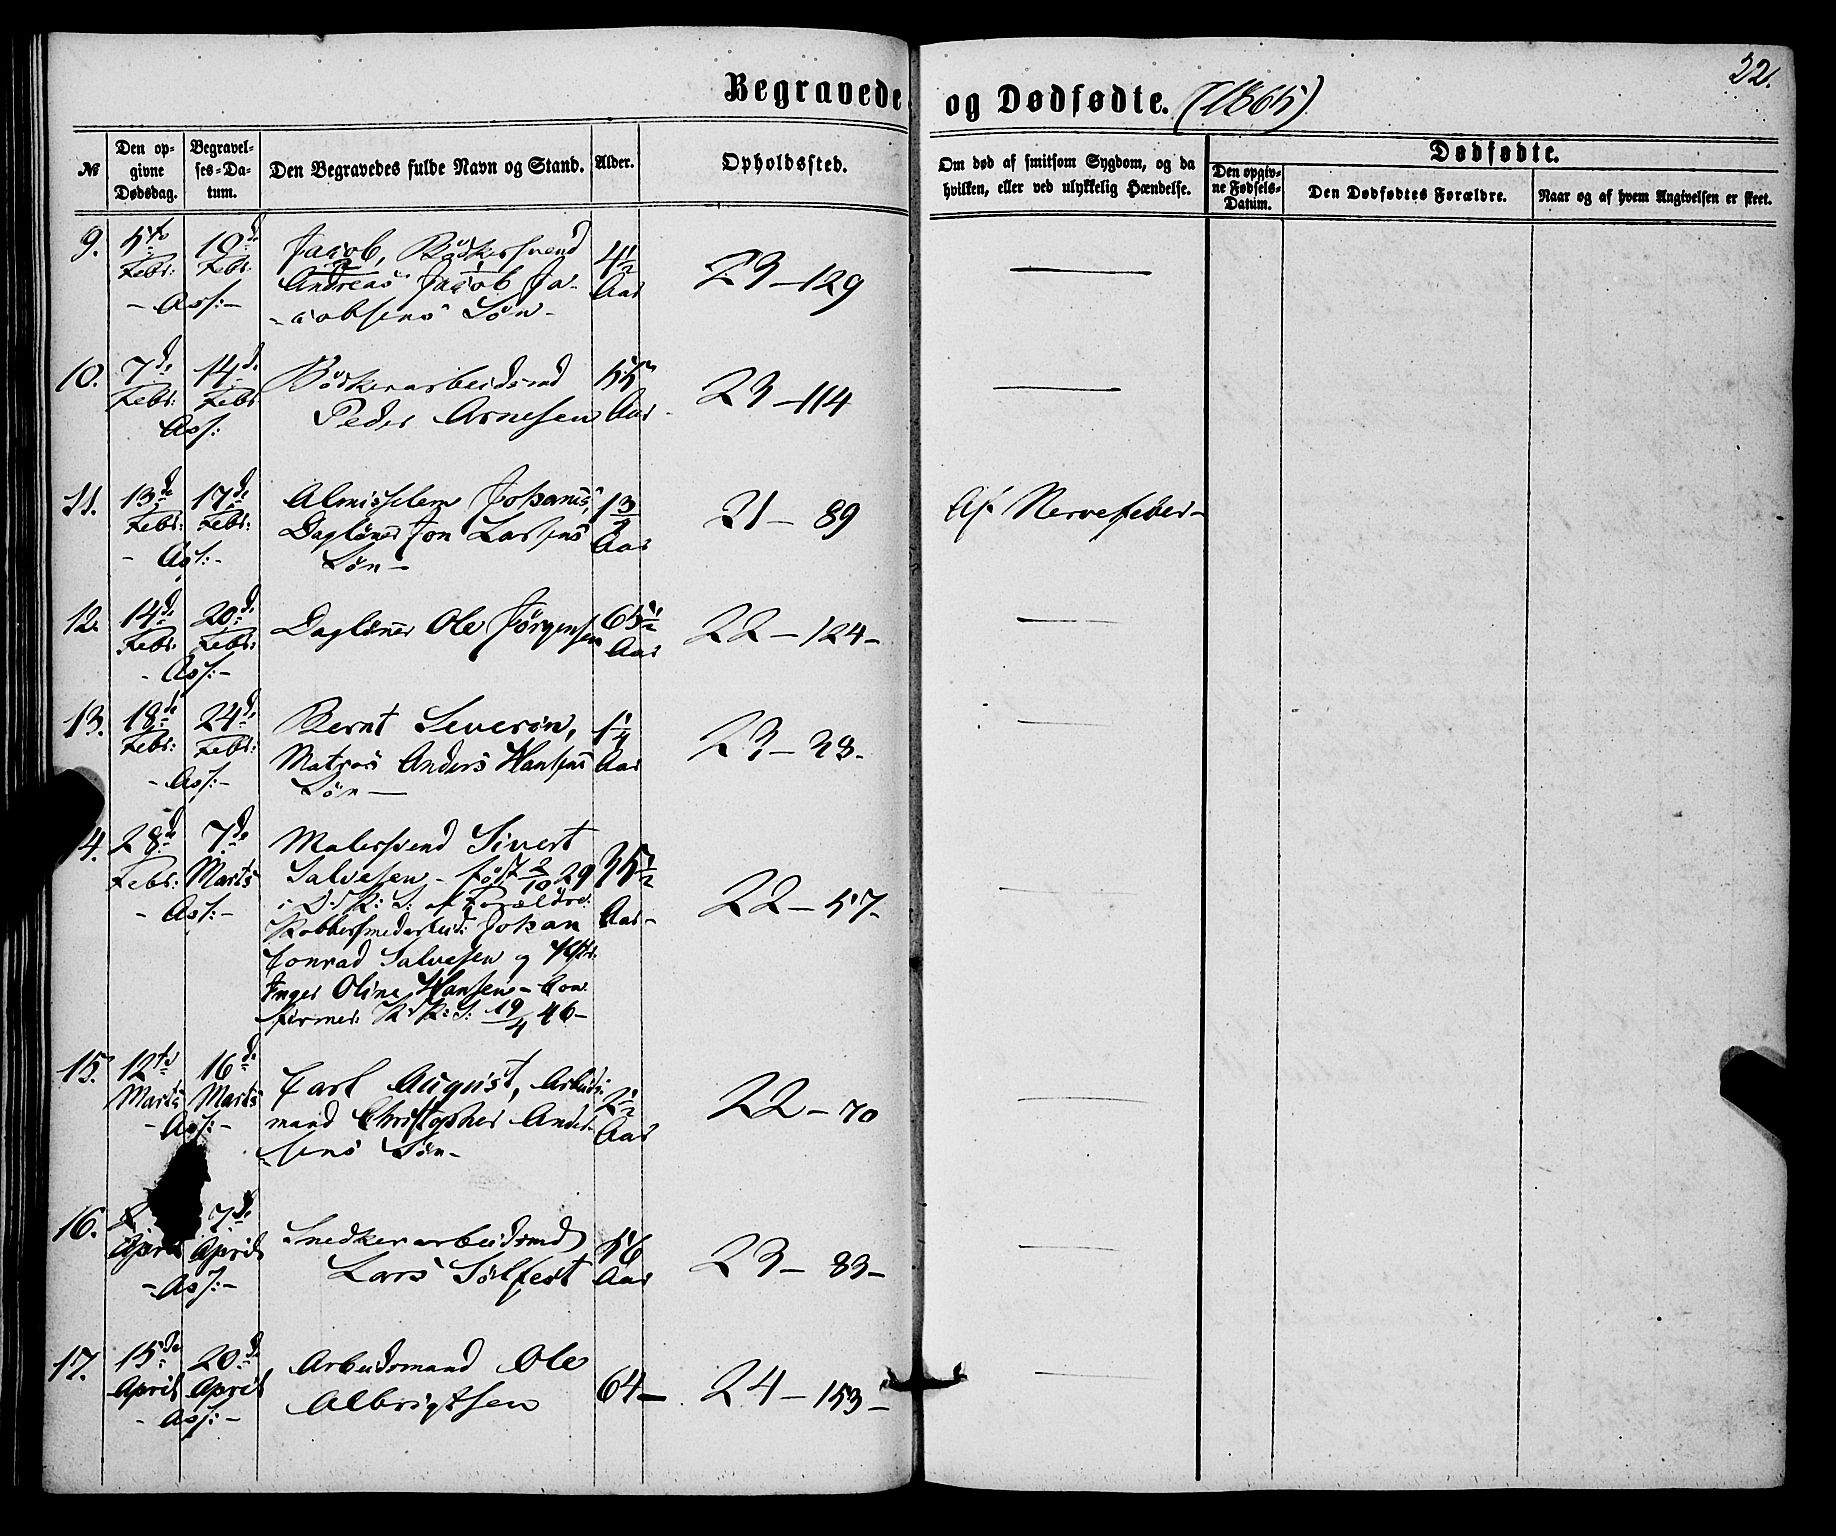 22.
Begravede og Dødfødte. (1865)
№
Den opgivne Dødsdag.
Begravelses-Datum.
Den Begravedes fulde Navn og Stand.
Alder.
Opholdssted.
Om død af smitsom Sygdom, og da hvilken, eller ved ulykkelig Hændelse.
Dødfødte.
Den opgivne Fødsels-Datum.
Den Dødfødtes Forældre.
Naar og af hvem Angivelsen er skeet.
9. 5te Febr: 10de Febr: Jacob, Bødkersvend 4½ Aar 23-129
Andreas Jacob Ja-
-Ass:- -cobsens Søn-
10. 7de Febr: 14de Febr: Bødkerarbeidsmd 55 Aar 23-114
Ass: Peder Arnesen
11. 13de Febr: 17de Febr: Johanes, 1¾ Aar 21-89 Af Nervefeber-
Dagløner Jon Larsens
-Ass:- Søn-
12. 14de Febr: 20de Febr: Dagløner Ole Jörgensen 65½ Aar 22-124-
-Ass:-
13. 18de Febr: 24de Febr: Bernt Severin, 1¼ Aar 23-28-
Matros Anders Hansens
-Ass:- Søn-
14. 28de Febr: 7de Marts Malersvend Sivert 35½ Aar- 22-57-
Salvesen- født 2/10 29
-Ass:- i D: K: S: af Forældre:
Kobbersmedarbeid: Johan
Conrad Salvesen og
Inger Oline Hansen- Con-
firmer: K: S: 19/4 46-
15. 12te Marts 16de Marts Carl August, Arbeids- 2½ Aar 22-70
mand Christopher Ander-
-Ass:- -sens Søn-
16. April 7de April Snedkerarbeidsmd 56 Aar 23-83-
-Ass:- Lars Solfest
17. 15de April 20de April Arbeidsmand Ole 64- 24-153-
-Ass:- Albrigtsen